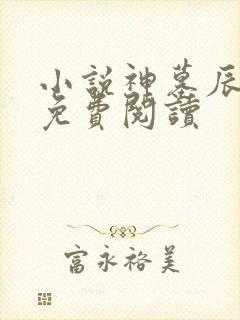 小説神墓辰
免費閱讀
富永裕美